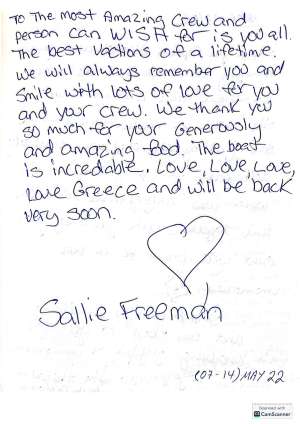 To The most Amazing Crew and
person can WISH for is you all.
The best Vactions of a lifetime.
We will always remember you and
Smile with lots of love for you
and your crew. We thank you
so much for your Generously
and amazing food. The boat
is incredable. Love, Love, Love,
Love Greece and will be back
very soon.
Sallie Freeman
(07-14) MAY 22
Scanned with
CamScanner